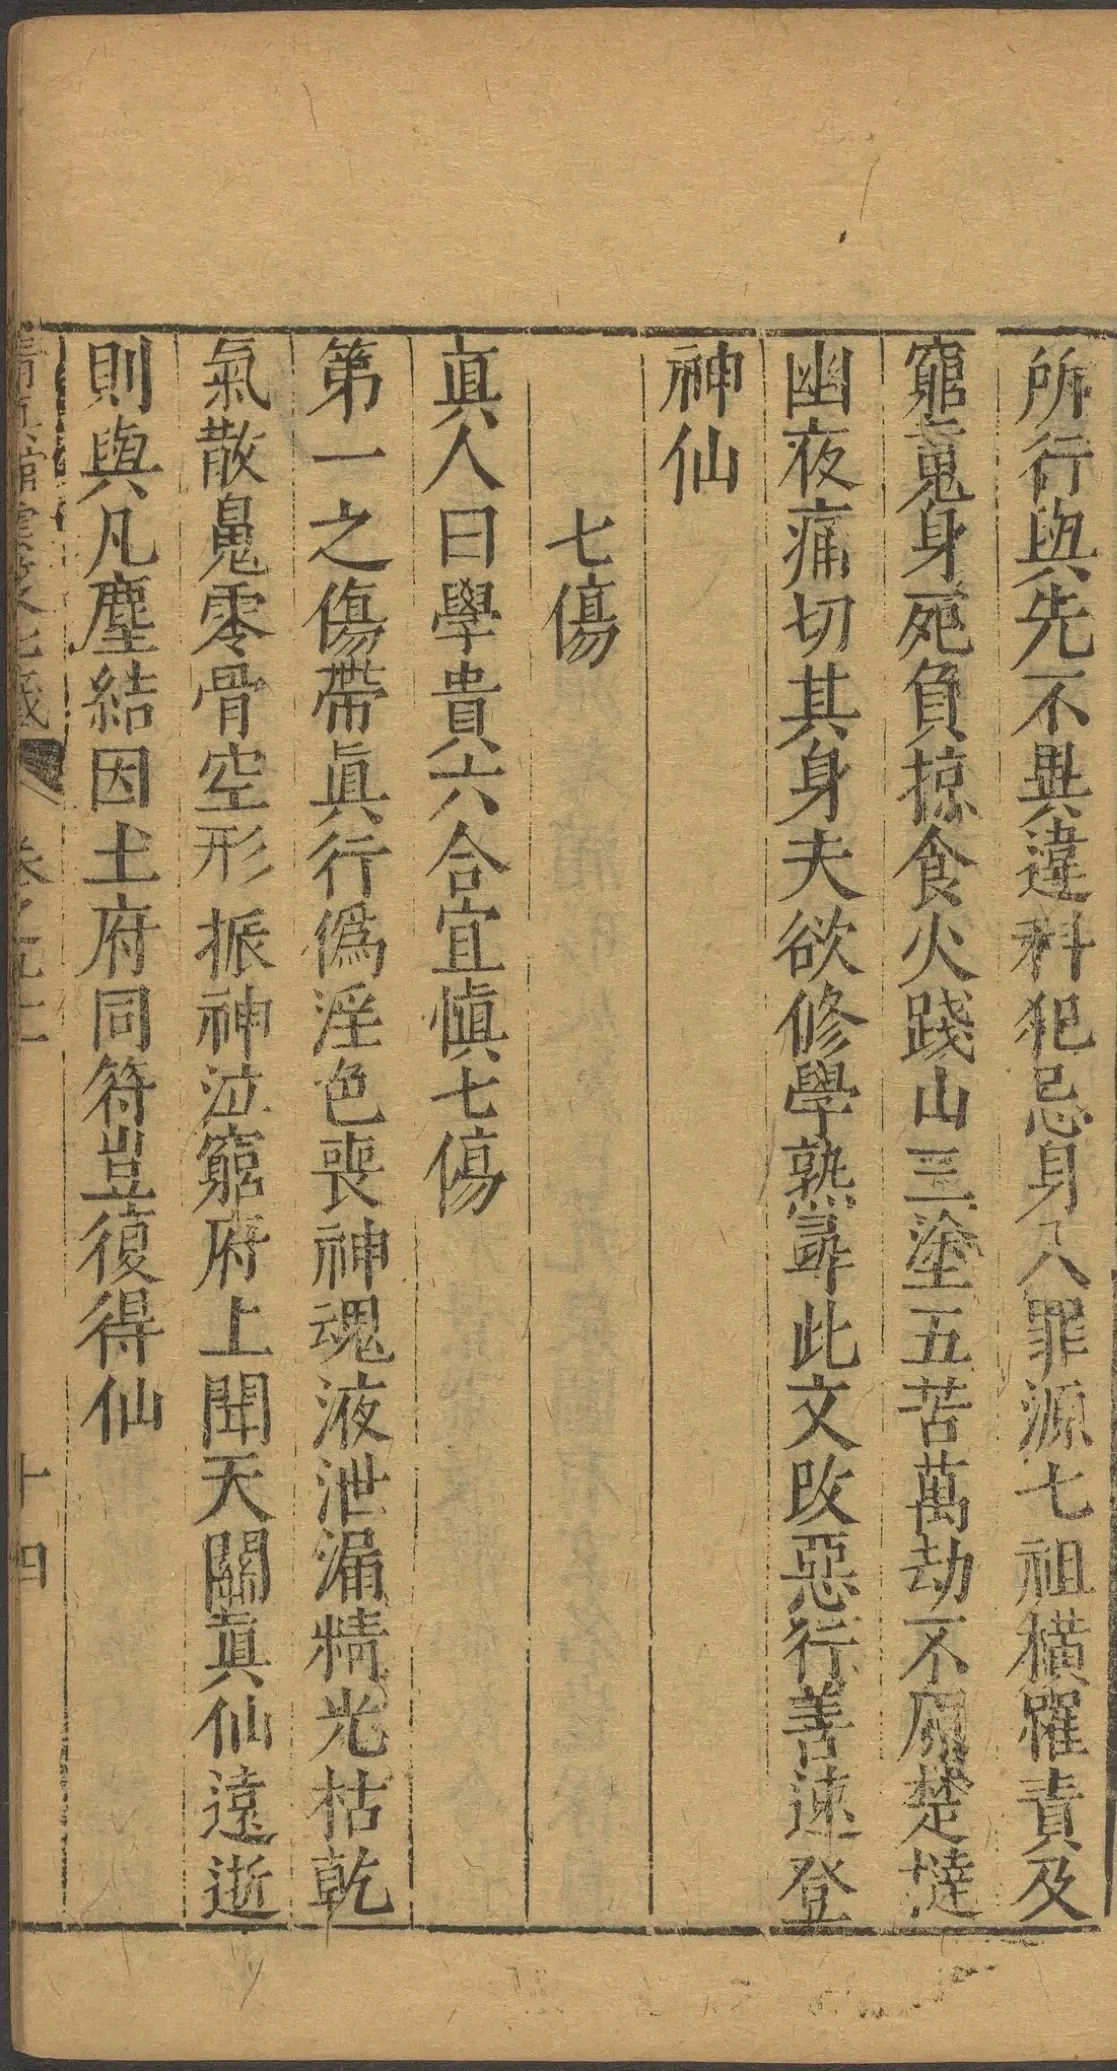 所行與先不異違科犯忌身入罪源七祖橫罹責及
窮䰟身死負掠食火踐山三塗五苦萬劫不原楚撻
幽夜痛切其身夫欲修學熟尋此文改惡行善速登
神仙
七傷
眞人曰學貴六合宜愼七傷
第一之傷帶眞行僞淫色喪神魂液泄漏精光枯乾
氣散鬼零骨空形振神泣窮府上聞天關眞仙遠逝
則與凡塵結因土府同符豈復得仙
清眞館雲笈七籤 卷之五十 十四